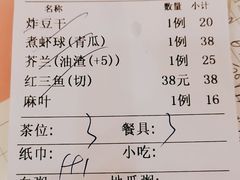 名称 数量 小计
炸豆干 1例 20
煮虾球(青瓜) 1例 38
芥兰(油渣(+5)) 1例 25
红三鱼(切) 38元 38
麻叶 1例 16
茶位: 3 餐具: 3
纸巾: 小吃:
白粥: 地瓜粥: